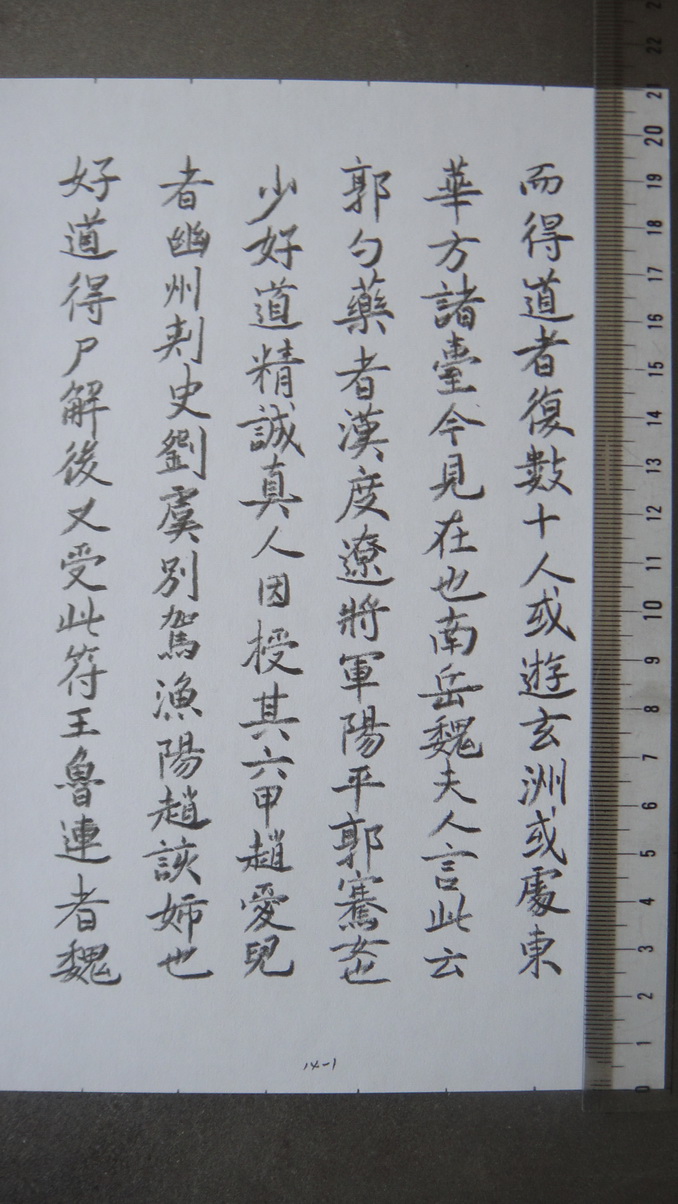 而得道者復數十人或遊玄洲或處東
華方諸臺今見在也南岳魏夫人言此云
郭勺藥者漢度遼將軍陽平郭騫女也
少好道精誠真人因授其六甲趙愛兒
者幽州刾史劉虞別駕漁陽趙該姉也
好道得尸解後又受此符王魯連者魏
14-1
22
21
20
19
18
17
16
15
14
13
12
11
10
9
8
7
6
5
4
3
2
1
0